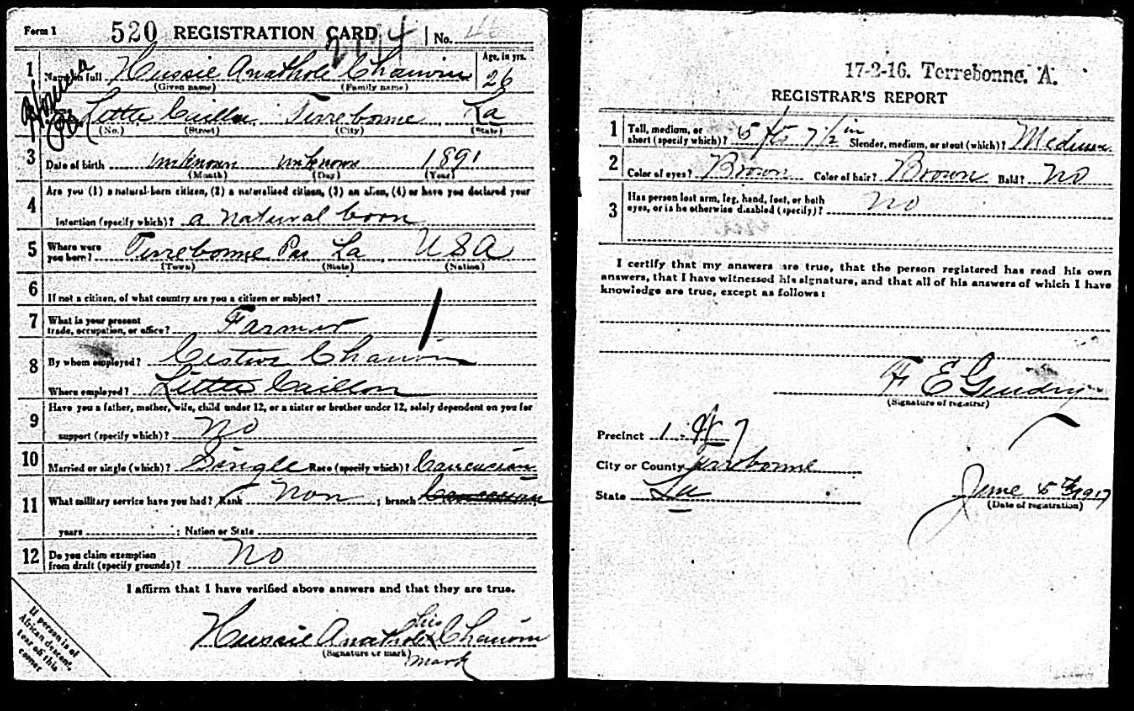 Form 1 520 REGISTRATION CARD No.
1 Name in full Hussie Anathole Chauvin Age, in yrs. 26
(Given name) (Family name)
Houma
2 Little Caillou Terrebonne La
(No.) (Street) (City) (State)
3 Date of birth unknown unknown 1891
(Month) (Day) (Year)
Are you (1) a natural-born citizen, (2) a naturalized citizen, (3) an alien, (4) or have you declared your
4 intention (specify which)? a natural born
5 Where were you born? Terrebonne Par La USA
(Town) (State) (Nation)
6 If not a citizen, of what country are you a citizen or subject?
7 What is your present trade, occupation, or office? Farmer
8 By whom employed? Chauvin
Where employed? Little Caillou
9 Have you a father, mother, wife, child under 12, or a sister or brother under 12, solely dependent on you for
support (specify which)? No
10 Married or single (which)? Single Race (specify which)? Caucasian
11 What military service have you had? Rank non ; branch Caucasian
years ; Nation or State
12 Do you claim exemption from draft (specify grounds)? No
I affirm that I have verified above answers and that they are true.
Hussie Anathole his x mark Chauvin
(Signature or mark)
If person is of
African descent,
tear off this
corner
17-2-16. Terrebonne. A.
REGISTRAR'S REPORT
1 Tall, medium, or short (specify which)? 5 fts 7 1/2 in Slender, medium, or stout (which)? Medium
2 Color of eyes? Brown Color of hair? Brown Bald? No
3 Has person lost arm, leg, hand, foot, or both
eyes, or is he otherwise disabled (specify)? No
I certify that my answers are true, that the person registered has read his own
answers, that I have witnessed his signature, and that all of his answers of which I have
knowledge are true, except as follows:
F E Guidry
(Signature of registrar)
Precinct 1
City or County Terrebonne
State La
June 5th 1917
(Date of registration)